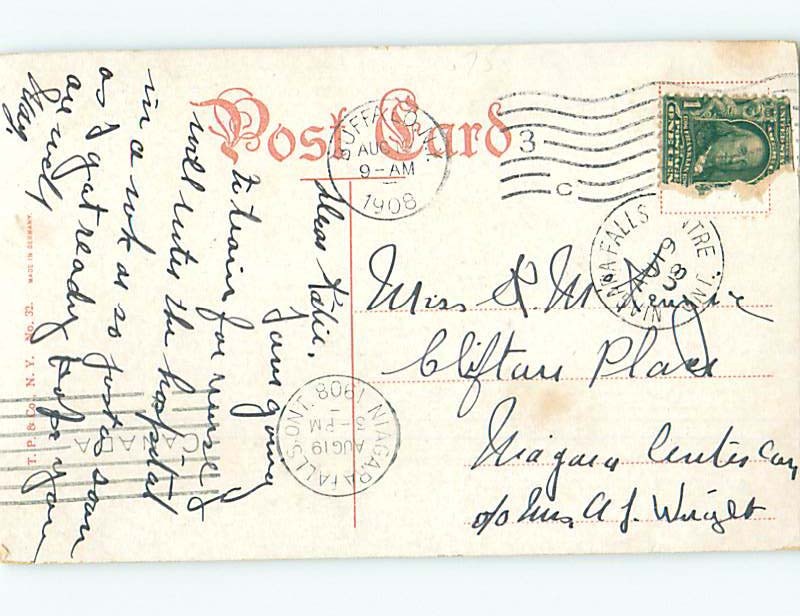 Post Card
BUFFALO, N.Y.
AUG
9-AM
1908
3
C
Dear Katie,
I am going
to train for nurse &
will enter the hospital
in a wk or so just as soon
as I get ready hope you
are well
May.
Miss K McKenzie
Clifton Place
Niagara Center Can
c/o Mrs. A J. Wright
NIAGARA FALLS CENTRE
AU 19
08
ONT.
NIAGARA FALLS-ONT. 1908
AUG 19
-PM
CANADA
T. P. & Co., N. Y. No. 32. MADE IN GERMANY.